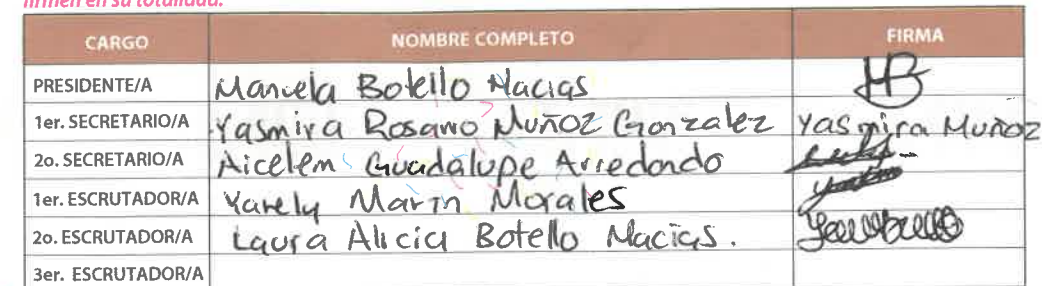 firmen en su totalidad.
CARGO NOMBRE COMPLETO FIRMA
PRESIDENTE/A Manuela Botello Macias HB
1er. SECRETARIO/A Yasmira Rosario Muñoz Gonzalez Yasmira Muñoz
2o. SECRETARIO/A Aicelem Guadalupe Arredondo
1er. ESCRUTADOR/A Yarely Marin Morales
2o. ESCRUTADOR/A Laura Alicia Botello Macias.
3er. ESCRUTADOR/A